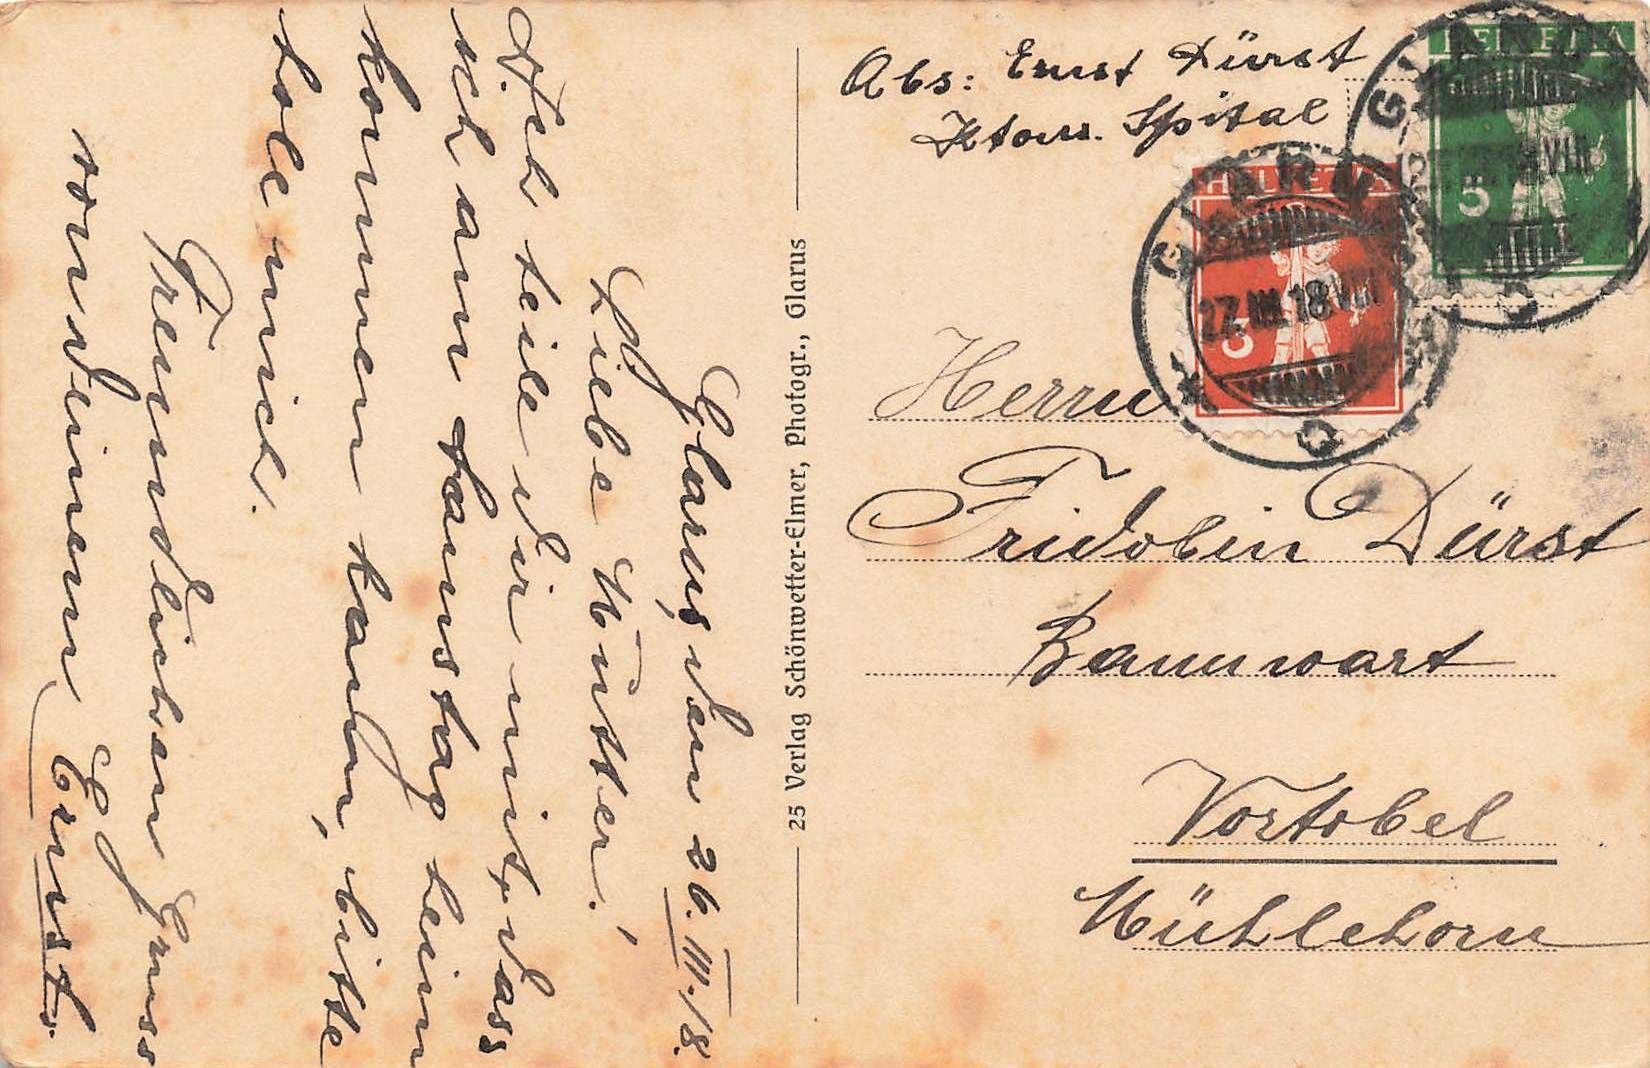 Glarus, den 26. III. 18.
Liebe Mutter!
Ich teile dir mit, dass
ich am Samstag heim
kommen kann, bitte
hole mich.
Freundlichen Gruss
von deinem Ernst.
25 Verlag Schönwetter-Elmer, Photogr., Glarus
Abs: Ernst Dürst
Kton. Spital
HELVETIA
5
HELVETIA
3
GLARUS
27. III. 18. VIII
GLARUS
VIII
Herrn
Fridolin Dürst
Bannwart
Vortobel
Mühlehorn